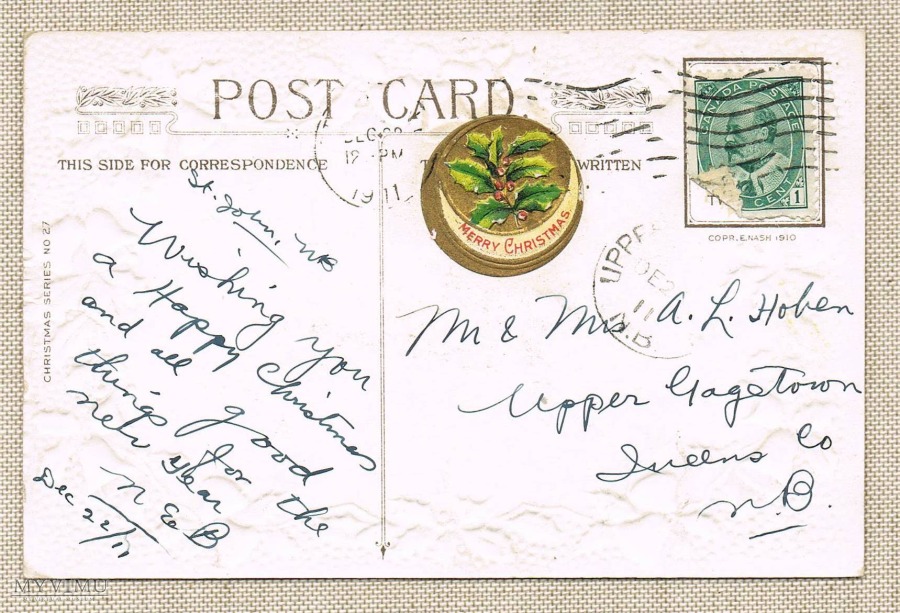 POST CARD
THIS SIDE FOR CORRESPONDENCE
WRITTEN
DEC 22
12 PM
1911
MERRY CHRISTMAS
CANADA POSTAGE
CENT 1
COPR. E. NASH 1910
UPPE
DE 2
11
N.B
CHRISTMAS SERIES NO 27
St. John, NB
Wishing you
a Happy Christmas
and all good
things for the
New Year
N E B
Dec 22/11
Mr & Mrs A. L. Hoben
Upper Gagetown
Queens Co
N.B.
MYVIMU